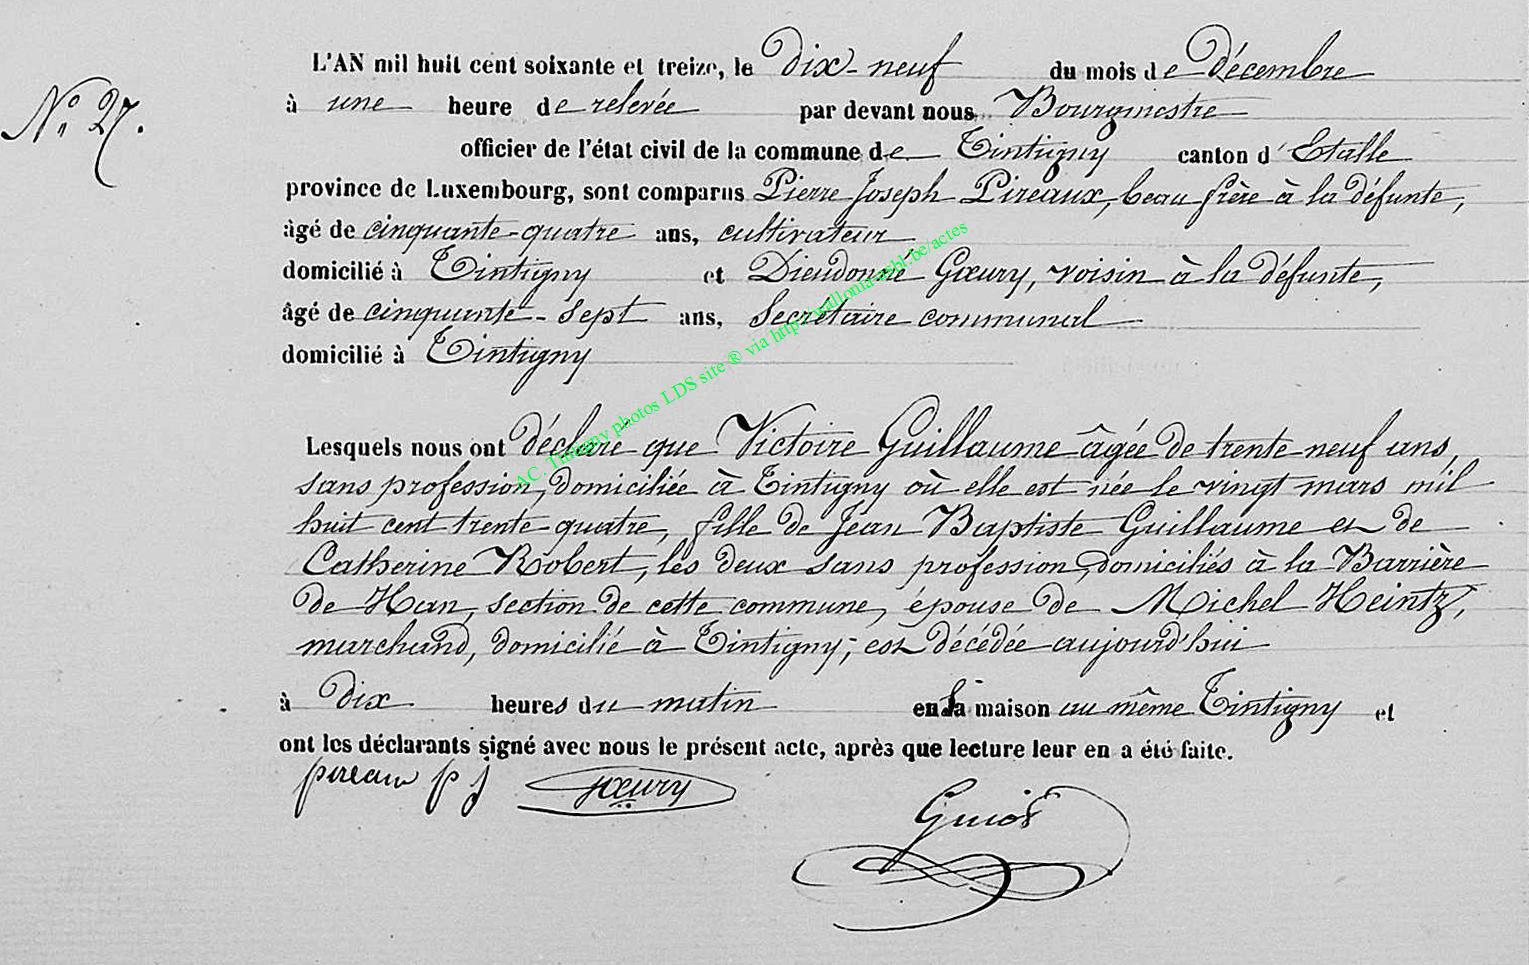 L'AN mil huit cent soixante et treize, le Dix-neuf du mois de Décembre
N° 27.
à une heure de relevée par devant nous Bourgmestre
officier de l'état civil de la commune de Tintigny canton d'Etalle
province de Luxembourg, sont comparus Pierre Joseph Pireaux, beau frère à la défunte,
âgé de cinquante-quatre ans, cultivateur
domicilié à Tintigny et Dieudonné Gœury, voisin à la défunte,
âgé de cinquante-sept ans, Secrétaire communal
domicilié à Tintigny
AC. Tintigny photos LDS site ® via http://wallonia-asbl.be/actes
Lesquels nous ont déclaré que Victoire Guillaume âgée de trente neuf ans,
sans profession, domiciliée à Tintigny où elle est née le vingt mars mil
huit cent trente-quatre, fille de Jean Baptiste Guillaume et de
Catherine Robert, les deux sans profession, domiciliés à la Barrière
de Han, section de cette commune, épouse de Michel Heintz,
marchand, domicilié à Tintigny; est décédée aujourd'hui
à Dix heures du matin en sa maison au même Tintigny et
ont les déclarants signé avec nous le présent acte, après que lecture leur en a été faite.
pireaux p j Gœury
Guiot